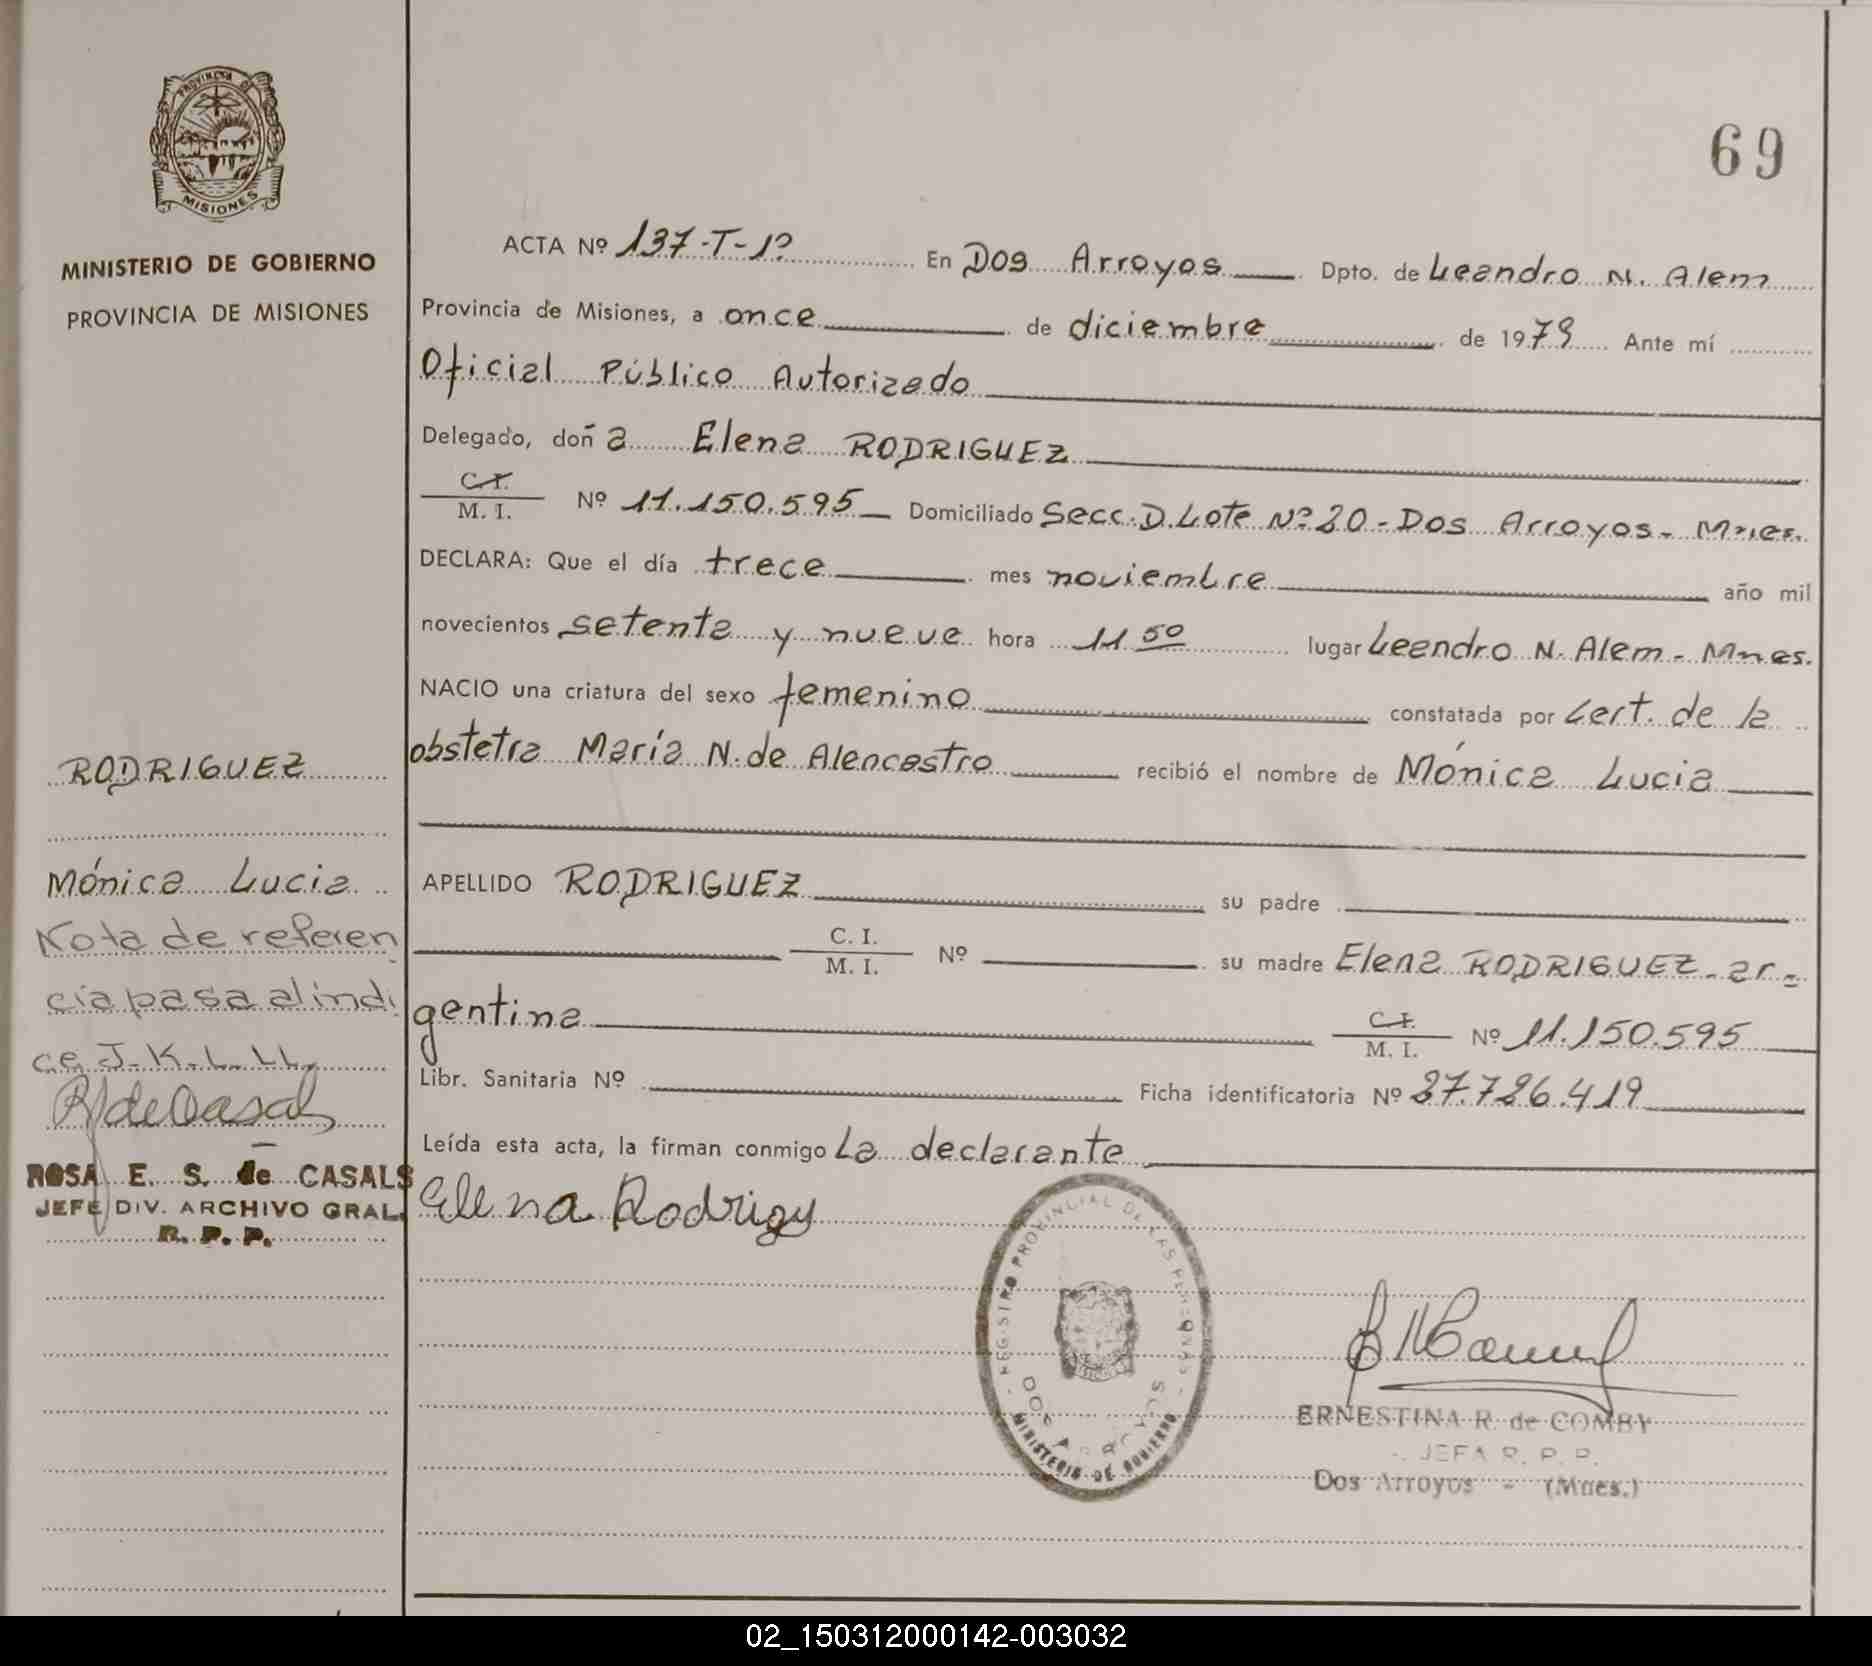 PROVINCIA DE
MISIONES
MINISTERIO DE GOBIERNO
PROVINCIA DE MISIONES
69
ACTA Nº 137-T-1º En Dos Arroyos Dpto. de Leandro N. Alem
Provincia de Misiones, a once de diciembre de 1979 Ante mí
Oficial Público Autorizado
Delegado, doña Elena RODRIGUEZ
C.I.
M. I. Nº 11.150.595 Domiciliado Secc. D. Lote Nº 20 - Dos Arroyos - Mnes.
DECLARA: Que el día trece mes noviembre año mil
novecientos setenta y nueve hora 11 50 lugar Leandro N. Alem - Mnes.
NACIO una criatura del sexo femenino constatada por Cert. de la
obstetra María N. de Alencastro recibió el nombre de Mónica Lucia
APELLIDO RODRIGUEZ su padre
C. I.
M. I. Nº su madre Elena RODRIGUEZ - ar-
gentina C.I.
M. I. Nº 11.150.595
Libr. Sanitaria Nº Ficha identificatoria Nº 27.726.419
Leída esta acta, la firman conmigo La declarante
Elena Rodrigu
RODRIGUEZ
Mónica Lucia
Nota de referen
cia pasa al indi
ce J-K-L-LL
ROSA E. S. de CASALS
JEFE DIV. ARCHIVO GRAL.
R. P. P.
REGISTRO PROVINCIAL DE LAS PERSONAS
DOS ARROYOS
MINISTERIO DE GOBIERNO
ERNESTINA R. de COMBY
JEFA R. P. P.
Dos Arroyos - (Mnes.)
02_150312000142-003032